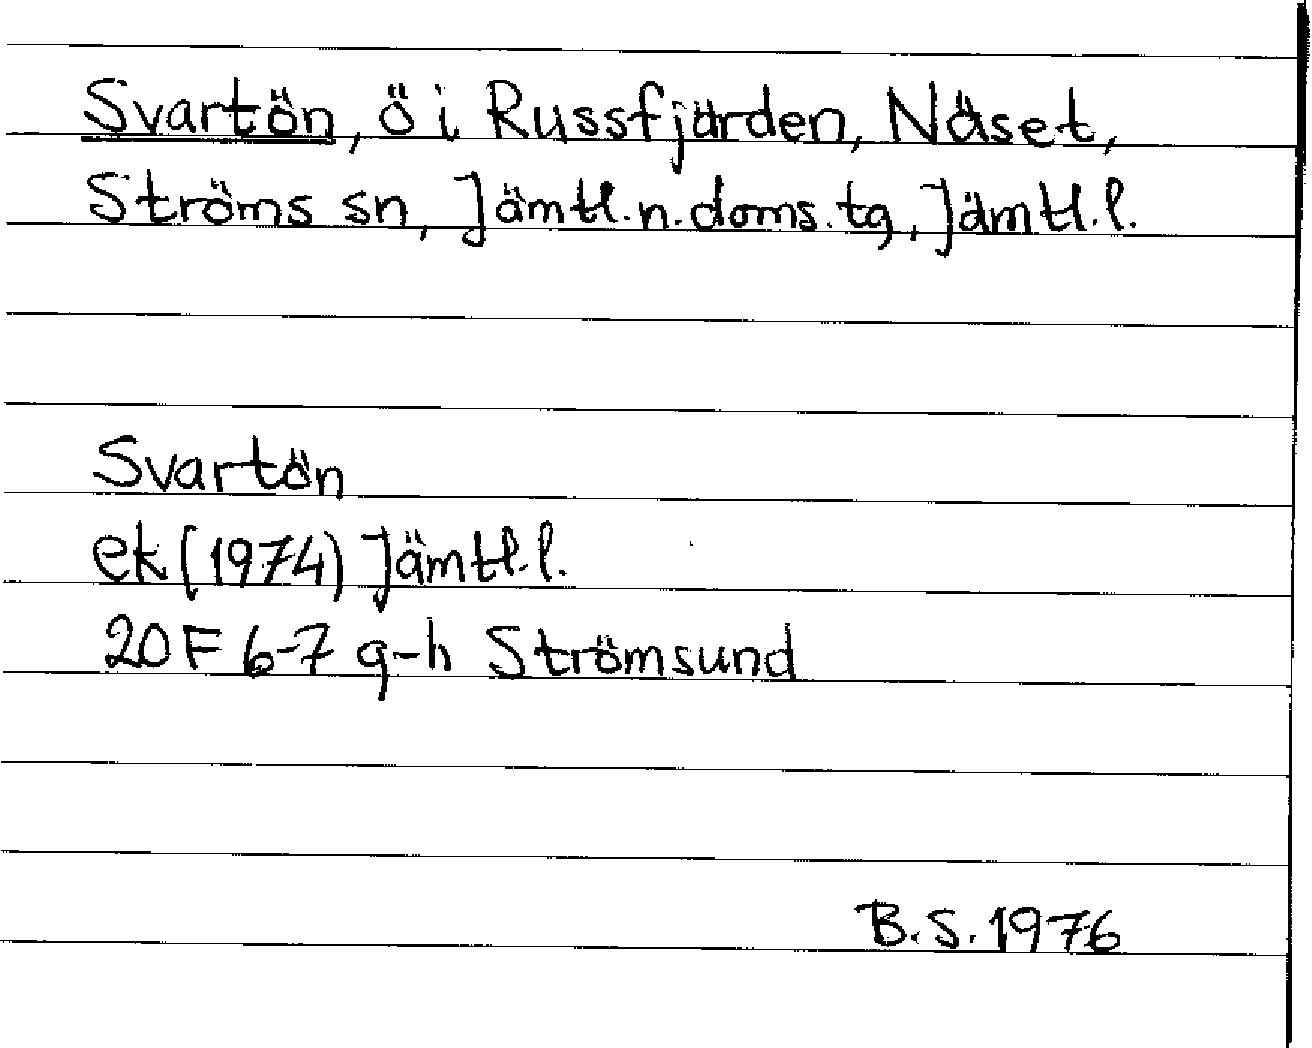 Svartön, ö i Russfjärden, Näset,
Ströms sn, Jämtl.n.doms.tg, Jämtl.l.
Svartön
ek (1974) Jämtl.l.
20F 6-7 g-h Strömsund
B.S. 1976